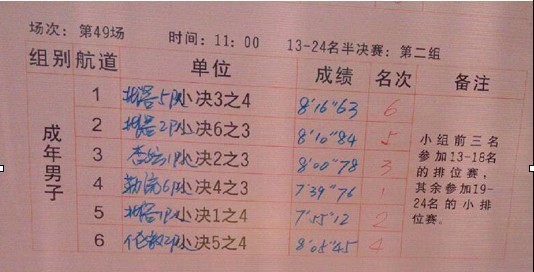 场次：第49场 时间：11：00 13-24名半决赛：第二组
组别 航道 单位 成绩 名次 备注
成年男子
1 小决3之4 8'16"63 6
2 小决6之3 8'10"84 5
3 小决2之3 8'00"78 3
4 小决4之3 7'39"76 1
5 小决1之4 7'55"12 2
6 小决5之4 8'05"45 4
小组前三名
参加13-18名
的排位赛，
其余参加19-
24名的小排
位赛。